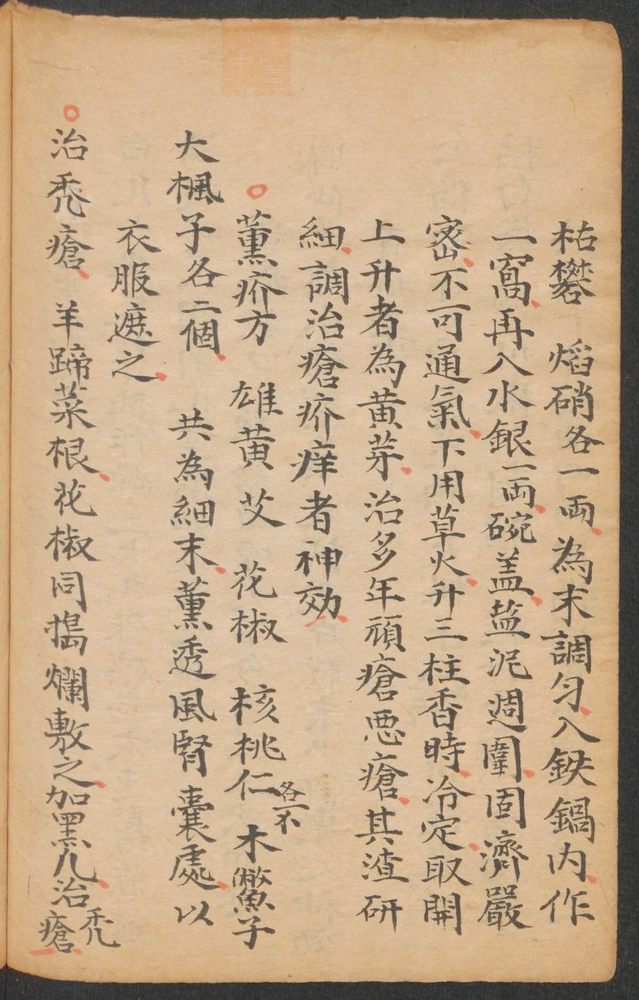 枯礬 焰硝各一兩為末調匀入鉄鍋内作
一窩再入水銀一兩碗盖盐泥週圍固濟嚴
宻不可通氣下用草火升三柱香時冷定取開
上升者為黄芽治多年頑瘡悪瘡其渣研
細調治瘡疥痒者神効
薰疥方 雄黄 艾 花椒 核桃仁各不 木鱉子
大楓子各二個 共為細末薰透風腎囊處以
衣服遮之
治秃瘡 羊蹄菜根花椒同搗爛敷之加黑凡治秃瘡